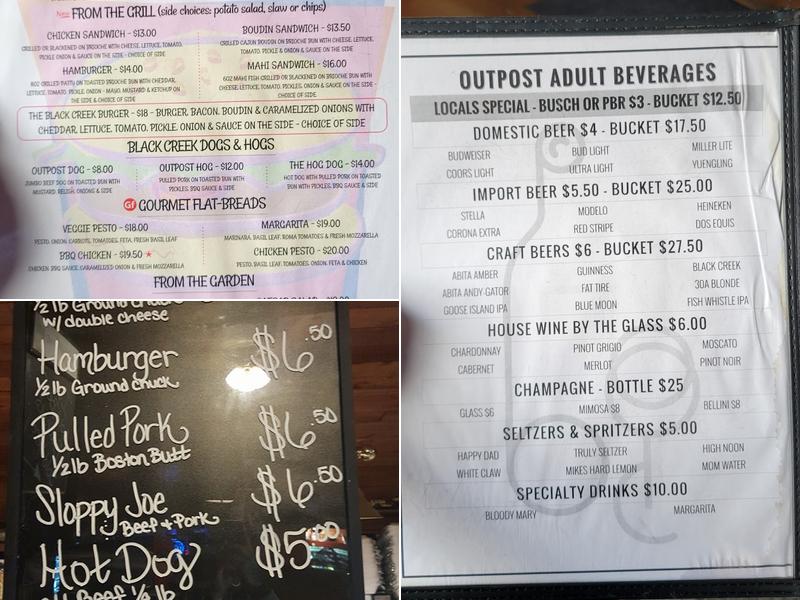 New FROM THE GRILL (side choices: potato salad, slaw or chips)
CHICKEN SANDWICH - $13.00
GRILLED OR BLACKENED ON BRIOCHE WITH CHEESE, LETTUCE, TOMATO,
PICKLE ONION & SAUCE ON THE SIDE - CHOICE OF SIDE
BOUDIN SANDWICH - $13.50
GRILLED CAJUN BOUDIN ON BRIOCHE WITH CHEESE, LETTUCE,
TOMATO, PICKLE & ONION & SAUCE ON THE SIDE
HAMBURGER - $14.00
8OZ GRILLED PATTY ON TOASTED BRIOCHE BUN WITH CHEDDAR,
LETTUCE, TOMATO, PICKLE, ONION - MAYO, MUSTARD & KETCHUP ON
THE SIDE & CHOICE OF SIDE
MAHI SANDWICH - $16.00
6OZ MAHI FISH GRILLED OR BLACKENED ON BRIOCHE BUN WITH
CHEESE, LETTUCE, TOMATO, PICKLES, ONION & SAUCE ON THE SIDE -
CHOICE OF SIDE
THE BLACK CREEK BURGER - $18 - BURGER, BACON, BOUDIN & CARAMELIZED ONIONS WITH
CHEDDAR, LETTUCE, TOMATO, PICKLE, ONION & SAUCE ON THE SIDE - CHOICE OF SIDE
BLACK CREEK DOGS & HOGS
OUTPOST DOG - $8.00
JUMBO BEEF DOG ON TOASTED BUN WITH
MUSTARD, RELISH, ONIONS & SIDE
OUTPOST HOG - $12.00
PULLED PORK ON TOASTED BUN WITH
PICKLES, BBQ SAUCE & SIDE
THE HOG DOG - $14.00
HOT DOG WITH PULLED PORK ON TOASTED BUN
WITH PICKLES, BBQ SAUCE & SIDE
Gf GOURMET FLAT-BREADS
VEGGIE PESTO - $18.00
PESTO, ONION, CARROTS, TOMATOES, FETA, FRESH BASIL LEAF
MARGARITA - $19.00
MARINARA, BASIL LEAF, ROMA TOMATOES & FRESH MOZZARELLA
BBQ CHICKEN - $19.50
CHICKEN, BBQ SAUCE, CARAMELIZED ONION & FRESH MOZZARELLA
CHICKEN PESTO - $20.00
PESTO, BASIL LEAF, TOMATOES, ONION, FETA & CHICKEN
FROM THE GARDEN
1/2 lb Ground Chuck
w/ double cheese
Hamburger $6.50
1/2 lb Ground chuck
Pulled Pork $6.50
1/2 lb Boston Butt
Sloppy Joe $6.50
Beef & Pork
Hot Dog
OUTPOST ADULT BEVERAGES
LOCALS SPECIAL - BUSCH OR PBR $3 - BUCKET $12.50
DOMESTIC BEER $4 - BUCKET $17.50
BUDWEISER BUD LIGHT MILLER LITE
COORS LIGHT ULTRA LIGHT YUENGLING
IMPORT BEER $5.50 - BUCKET $25.00
STELLA MODELO HEINEKEN
CORONA EXTRA RED STRIPE DOS EQUIS
CRAFT BEERS $6 - BUCKET $27.50
ABITA AMBER GUINNESS BLACK CREEK
ABITA ANDY-GATOR FAT TIRE 30A BLONDE
GOOSE ISLAND IPA BLUE MOON FISH WHISTLE IPA
HOUSE WINE BY THE GLASS $6.00
CHARDONNAY PINOT GRIGIO MOSCATO
CABERNET MERLOT PINOT NOIR
CHAMPAGNE - BOTTLE $25
GLASS $6 MIMOSA $8 BELLINI $8
SELTZERS & SPRITZERS $5.00
HAPPY DAD TRULY SELTZER HIGH NOON
WHITE CLAW MIKES HARD LEMON MOM WATER
SPECIALTY DRINKS $10.00
BLOODY MARY MARGARITA